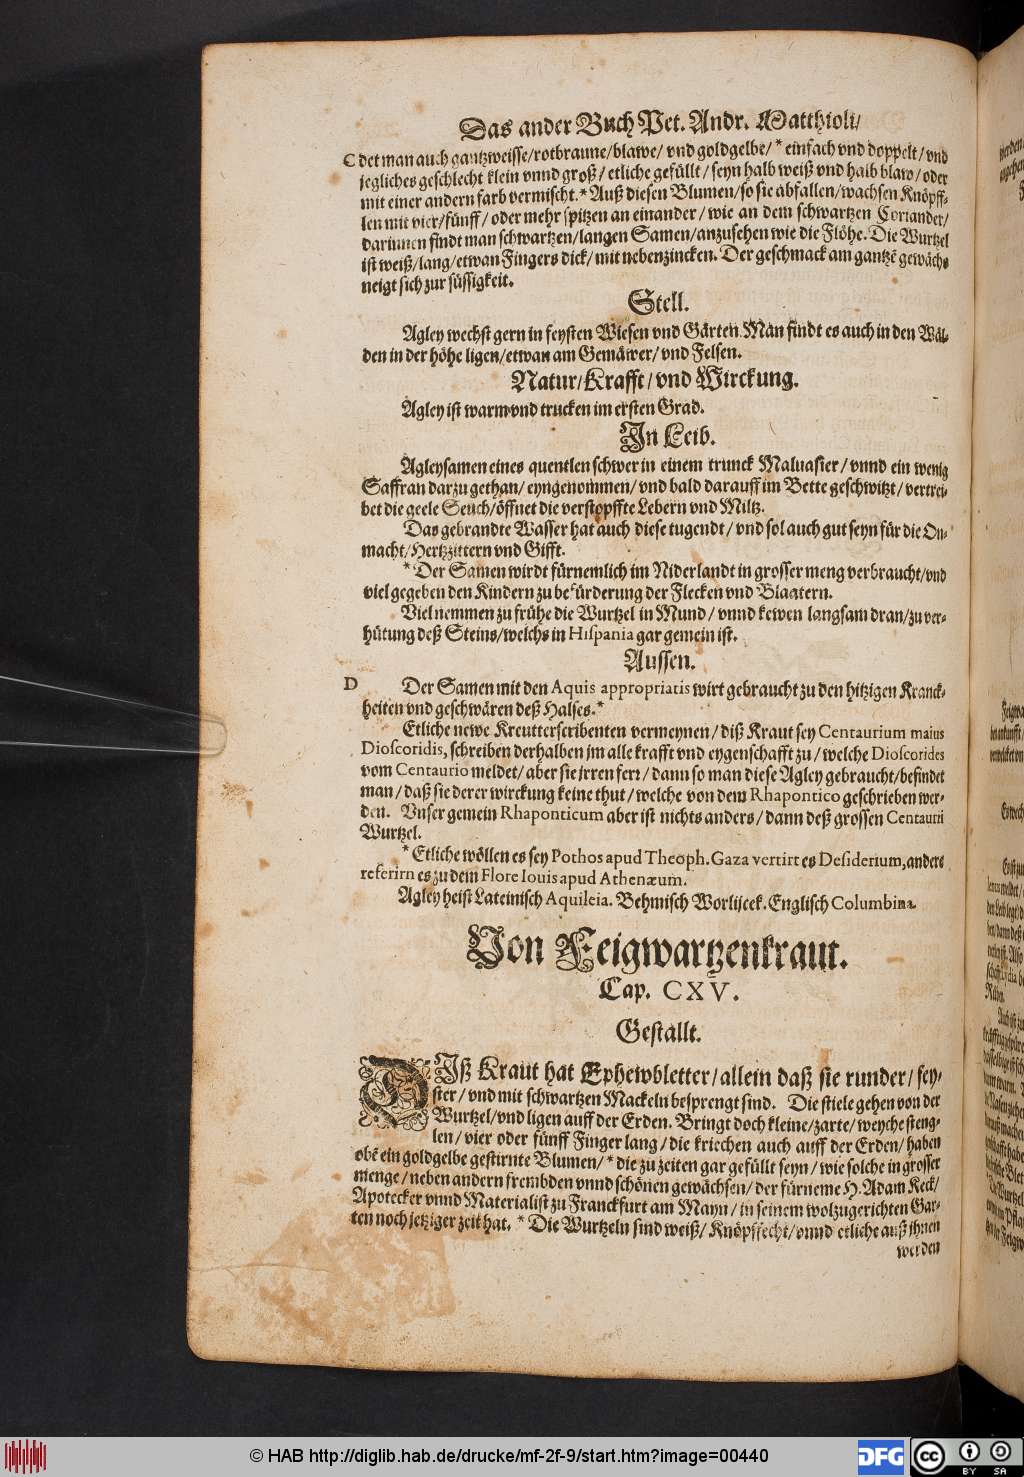 Das ander Buch Pet. Andr. Matthioli/
C det man auch gantzweisse/rotbraune/blawe/ vnd goldgelbe/ * einfach vnd doppelt/ vnd
jegliches geschlecht klein vnnd groß/ etliche gefüllt/ seyn halb weiß vnd halb blaw/ oder
mit einer andern farb vermischt. * Auß diesen Blumen/so sie abfallen/wachsen Knöpff-
len mit vier/fünff/ oder mehr spitzen an einander/ wie an dem schwartzen Coriander/
darinnen findt man schwartzen/langen Samen/anzusehen wie die Flöhe. Die Wurtzel
ist weiß/lang/etwan Fingers dick/ mit nebenzincken. Der geschmack am gantzē gewächs
neigt sich zur süssigkeit.
Stell.
Agley wechst gern in feysten Wiesen vnd Gärten. Man findt es auch in den Wäl-
den in der höhe ligen/etwan am Gemäwer/ vnd Felsen.
Natur/Krafft/ vnd Wirckung.
Agley ist warm vnd trucken im ersten Grad.
In Leib.
Agleysamen eines quentlen schwer in einem trunck Maluasier/ vnnd ein wenig
Saffran darzu gethan/ eyngenommen/ vnd bald darauff im Bette geschwitzt/ vertrei-
bet die geele Seuch/öffnet die verstopffte Lebern vnd Miltz.
Das gebrandte Wasser hat auch diese tugendt/ vnd sol auch gut seyn für die On-
macht/Hertzzittern vnd Gifft.
* Der Samen wirdt fürnemlich im Niderlandt in grosser meng verbraucht/vnd
viel gegeben den Kindern zu befürderung der Flecken vnd Blaatern.
Viel nemmen zu frühe die Wurtzel in Mund/ vnnd kewen langsam dran/zu ver-
hütung deß Steins/welchs in Hispania gar gemein ist.
Aussen.
D Der Samen mit den Aquis appropriatis wirt gebraucht zu den hitzigen Kranck-
heiten vnd geschwären deß Halses. *
Etliche newe Kreutterscribenten vermeynen/ diß Kraut sey Centaurium maius
Dioscoridis, schreiben derhalben jm alle krafft vnd eygenschafft zu/ welche Dioscorides
vom Centaurio meldet/ aber sie jrren ferr/ dann so man diese Agley gebraucht/befindet
man/ daß sie derer wirckung keine thut/ welche von dem Rhapontico geschrieben wer-
den. Vnser gemein Rhaponticum aber ist nichts anders/ dann deß grossen Centaurii
Wurtzel.
* Etliche wöllen es sey Pothos apud Theoph. Gaza vertirt es Desiderium, andere
referirn es zu dem Flore Iouis apud Athenæum.
Agley heist Lateinisch Aquileia. Behmisch Worlijcek. Englisch Columbina.
Von Feigwartzenkraut.
Cap. CXV.
Gestallt.
DIß Kraut hat Ephewbletter/ allein daß sie runder/ fey-
ster/ vnd mit schwartzen Mackeln besprengt sind. Die stiele gehen von der
Wurtzel/vnd ligen auff der Erden. Bringt doch kleine/zarte/ weyche steng-
len/ vier oder fünff Finger lang/ die kriechen auch auff der Erden/ haben
obē ein goldgelbe gestirnte Blumen/ * die zu zeiten gar gefüllt seyn/ wie solche in grosser
menge/ neben andern frembden vnnd schönen gewächsen/ der fürneme H. Adam Keck/
Apotecker vnnd Materialist zu Franckfurt am Mayn/ in seinem wolzugerichten Gar-
ten noch jetziger zeit hat. * Die Wurtzeln sind weiß/ Knöpffecht/ vnnd etliche auß ihnen
werden
© HAB http://diglib.hab.de/drucke/mf-2f-9/start.htm?image=00440
DFG
cc
BY SA